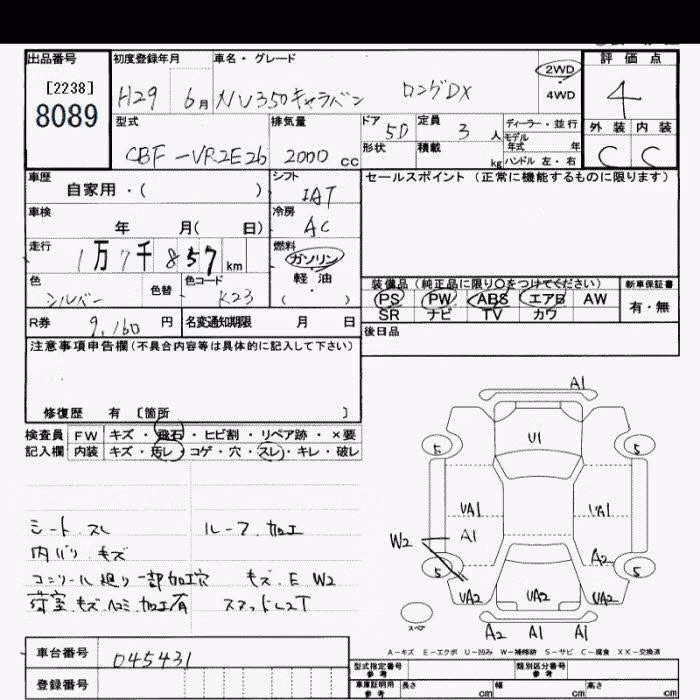 出品番号
[2238]
8089
初度登録年月
H29 6月
車名・グレード
NV350キャラバン ロングDX
2WD
4WD
評価点
4
外装 内装
C C
型式
CBF-VR2E26
排気量
2000 cc
ドア 5D
形状
定員 3 人
積載 kg
ディーラー・並行
モデル年式 年
ハンドル 左・右
車歴
自家用・( )
シフト
IAT
車検
年 月( 日)
冷房
AC
走行
1万7千857km
燃料
ガソリン
軽油
( )
色
シルバー
色替
色コード
K23
R券
9,160 円
名変通知期限 月 日
セールスポイント (正常に機能するものに限ります)
装備品 (純正品に限り○をつけてください)
PS PW ABS エアB AW
SR ナビ TV カワ
新車保証書
有・無
後日品
注意事項申告欄 (不具合内容等は具体的に記入して下さい)
修復歴 有 [箇所 ]
検査員記入欄
FW キズ・飛石・ヒビ割・リペア跡・×要
内装 キズ・汚レ・コゲ・穴・スレ・キレ・破レ
シート.スレ ルーフ.加工
内バリ.キズ
コンソール廻り一部加工穴 キズ.E W2
荷室.キズヘコミ.加工有
A1
5 5
U1
UA1 UA1
W2 A1
A2
5 5
UA2 UA2 UA2
A2 A1 A1
スペア
A-キズ E-エクボ U-凹み W-補修跡 S-サビ C-腐食 XX-交換済
車台番号
045431
登録番号
型式指定番号
参考
類別区分番号
参考
車庫証明用
参考
長さ cm
幅 cm
高さ cm